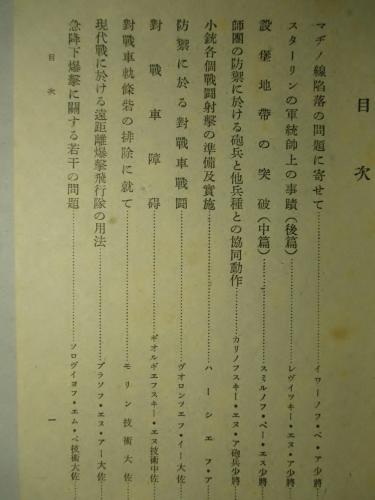 目次
マヂノ線陷落の問題に寄せて イワーノフ・ペ・ア少將
スターリンの軍統帥上の事蹟(後篇) レヴイツキー・エヌ・ア少將
設堡地帶の突破(中篇) スミルノフ・ペ・エス少將
師團の防禦に於ける砲兵と他兵種との協同動作 カリノフスキー・エヌ・ア砲兵少將
小銃各個戰鬪射擊の準備及實施 ハーシエフ・ア
防禦に於る對戰車戰鬪 ヴオロンツエフ・イー大佐
對戰車障碍 ギオルギエフスキー・エヌ技術中佐
對戰車軌條砦の排除に就て モリン技術大佐
現代戰に於ける遠距離爆擊飛行隊の用法 プラソフ・エヌ・アー大佐
急降下爆擊に關する若干の問題 ソロヴイヨフ・エム・ペ技術大佐
目次 一